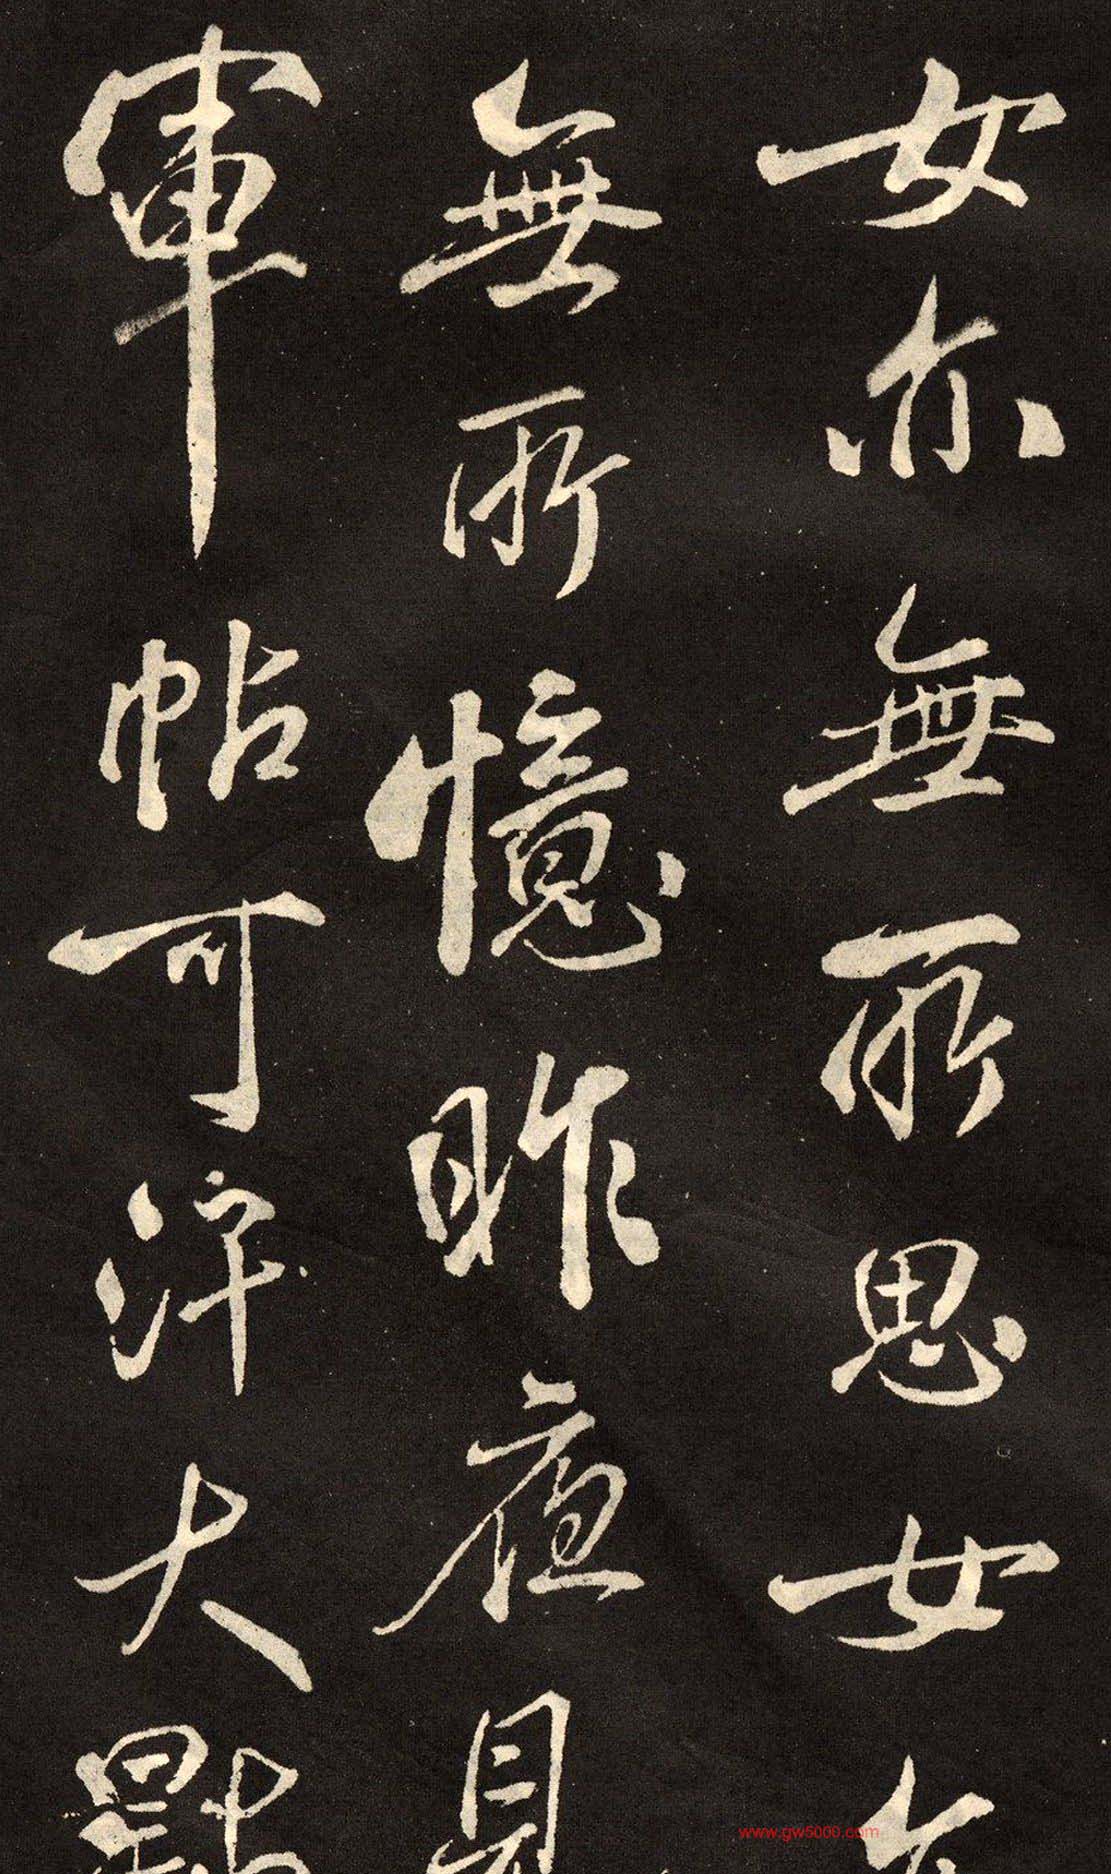 女亦無所思女亦
無所憶昨夜見
軍帖可汗大點
www.gw5000.com